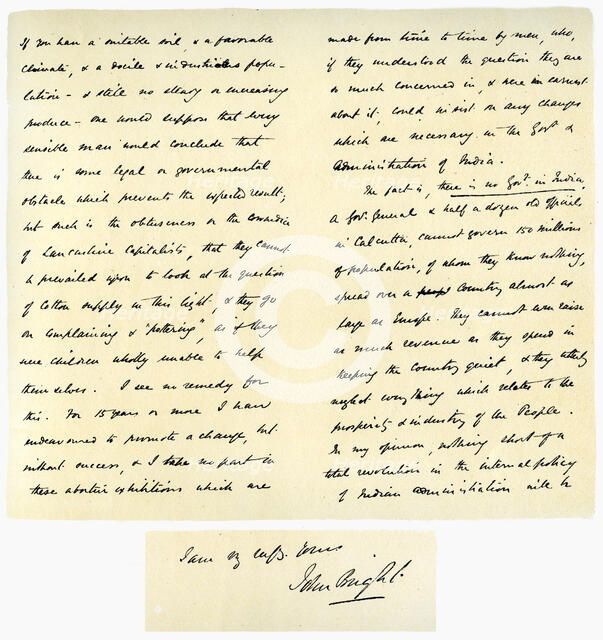 If you have a suitable soil, & a favorable
climate, & a docile & industrious popu-
lation - & still no steady or increasing
produce - one would suppose that every
sensible man would conclude that
there is some legal or governmental
obstacle which prevents the expected result;
but such is the obtuseness or the cowardice
of Lancashire Capitalists, that they cannot
be prevailed upon to look at the question
of Cotton supply in this light, & they go
on complaining & "pottering", as if they
were children wholly unable to help
themselves. I see no remedy for
this. For 15 years or more I have
endeavoured to promote a change, but
without success, & I take no part in
these abortive exhibitions which are
made from time to time by men, who,
if they understood the question they are
so much concerned in, & were in earnest
about it, could insist on any changes
which are necessary in the Govt. &
Administration of India.
The fact is, there is no Govt. in India.
A Gov. General & half a dozen old officials
in Calcutta, cannot govern 150 millions
of population, of whom they know nothing,
spread over a country almost as
large as Europe. They cannot even raise
as much revenue as they spend in
keeping the Country quiet, & they utterly
neglect everything which relates to the
prosperity & industry of the People.
In my opinion, nothing short of a
total revolution in the internal policy
of Indian administration will be
I am Yours
John Bright.